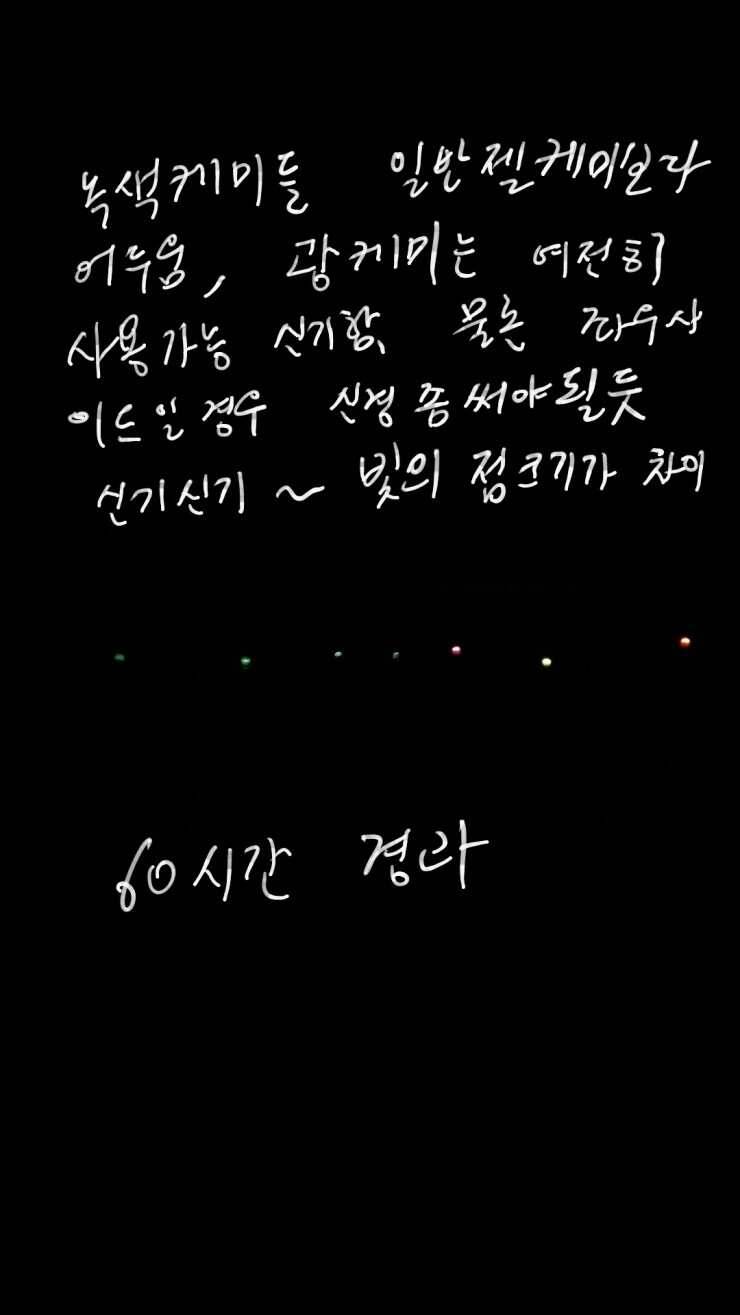 녹색케미들 일반젤케미보다
어두움, 광케미는 여전히
사용가능 신기함. 물론 좌우사
이드일경우 신경좀써야될듯
신기신기~ 빛의 점크기가 차이
60시간 경과